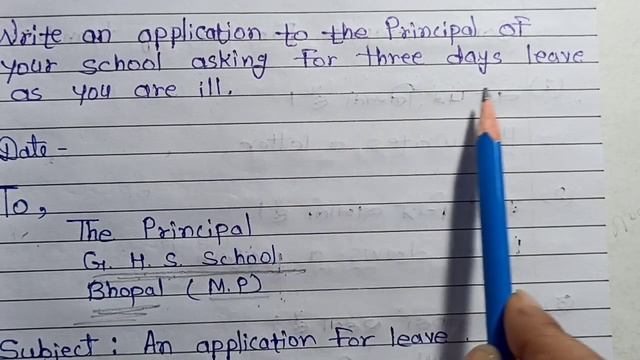 Write an application to the Principal of
your school asking for three days leave
as you are ill.
Date -
To,
The Principal
G. H. S. School
Bhopal (M.P)
Subject : An application for leave.